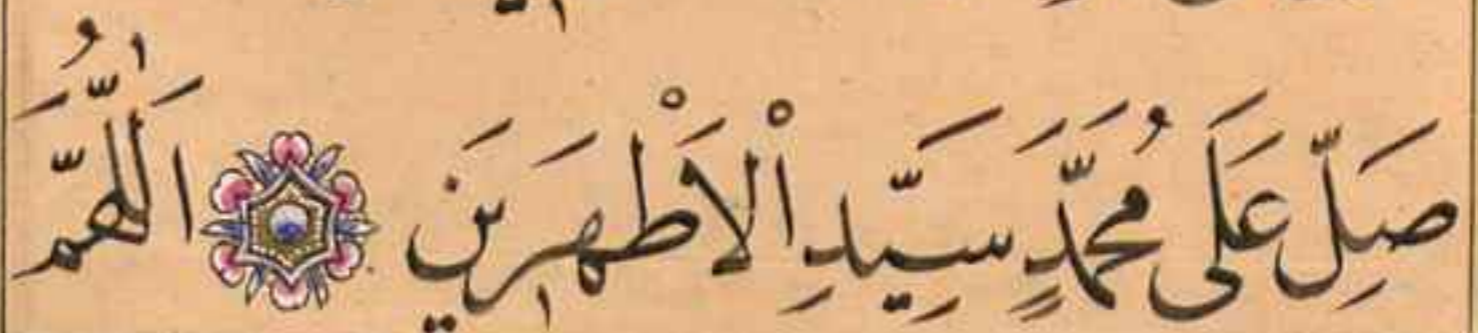 صَلِّ عَلَى مُحَمَّدٍ سَيِّدِ الْاَطْهَرِينَ اَللّٰهُمَّ